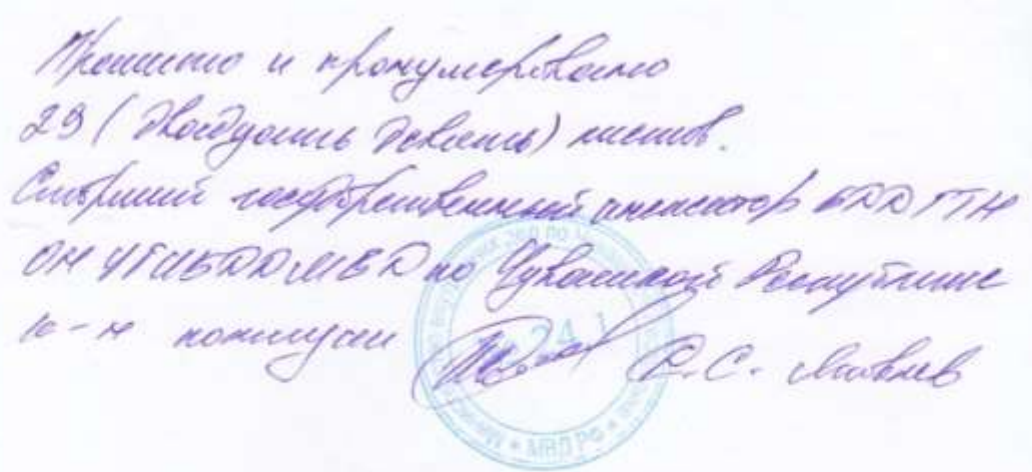 Прошито и пронумеровано
29 (двадцать девять) листов.
Старший государственный инспектор БДД ГТН
ОН УГИБДД МВД по Чувашской Республике
к-н полиции С.С. Яковлев
241
МВД РФ